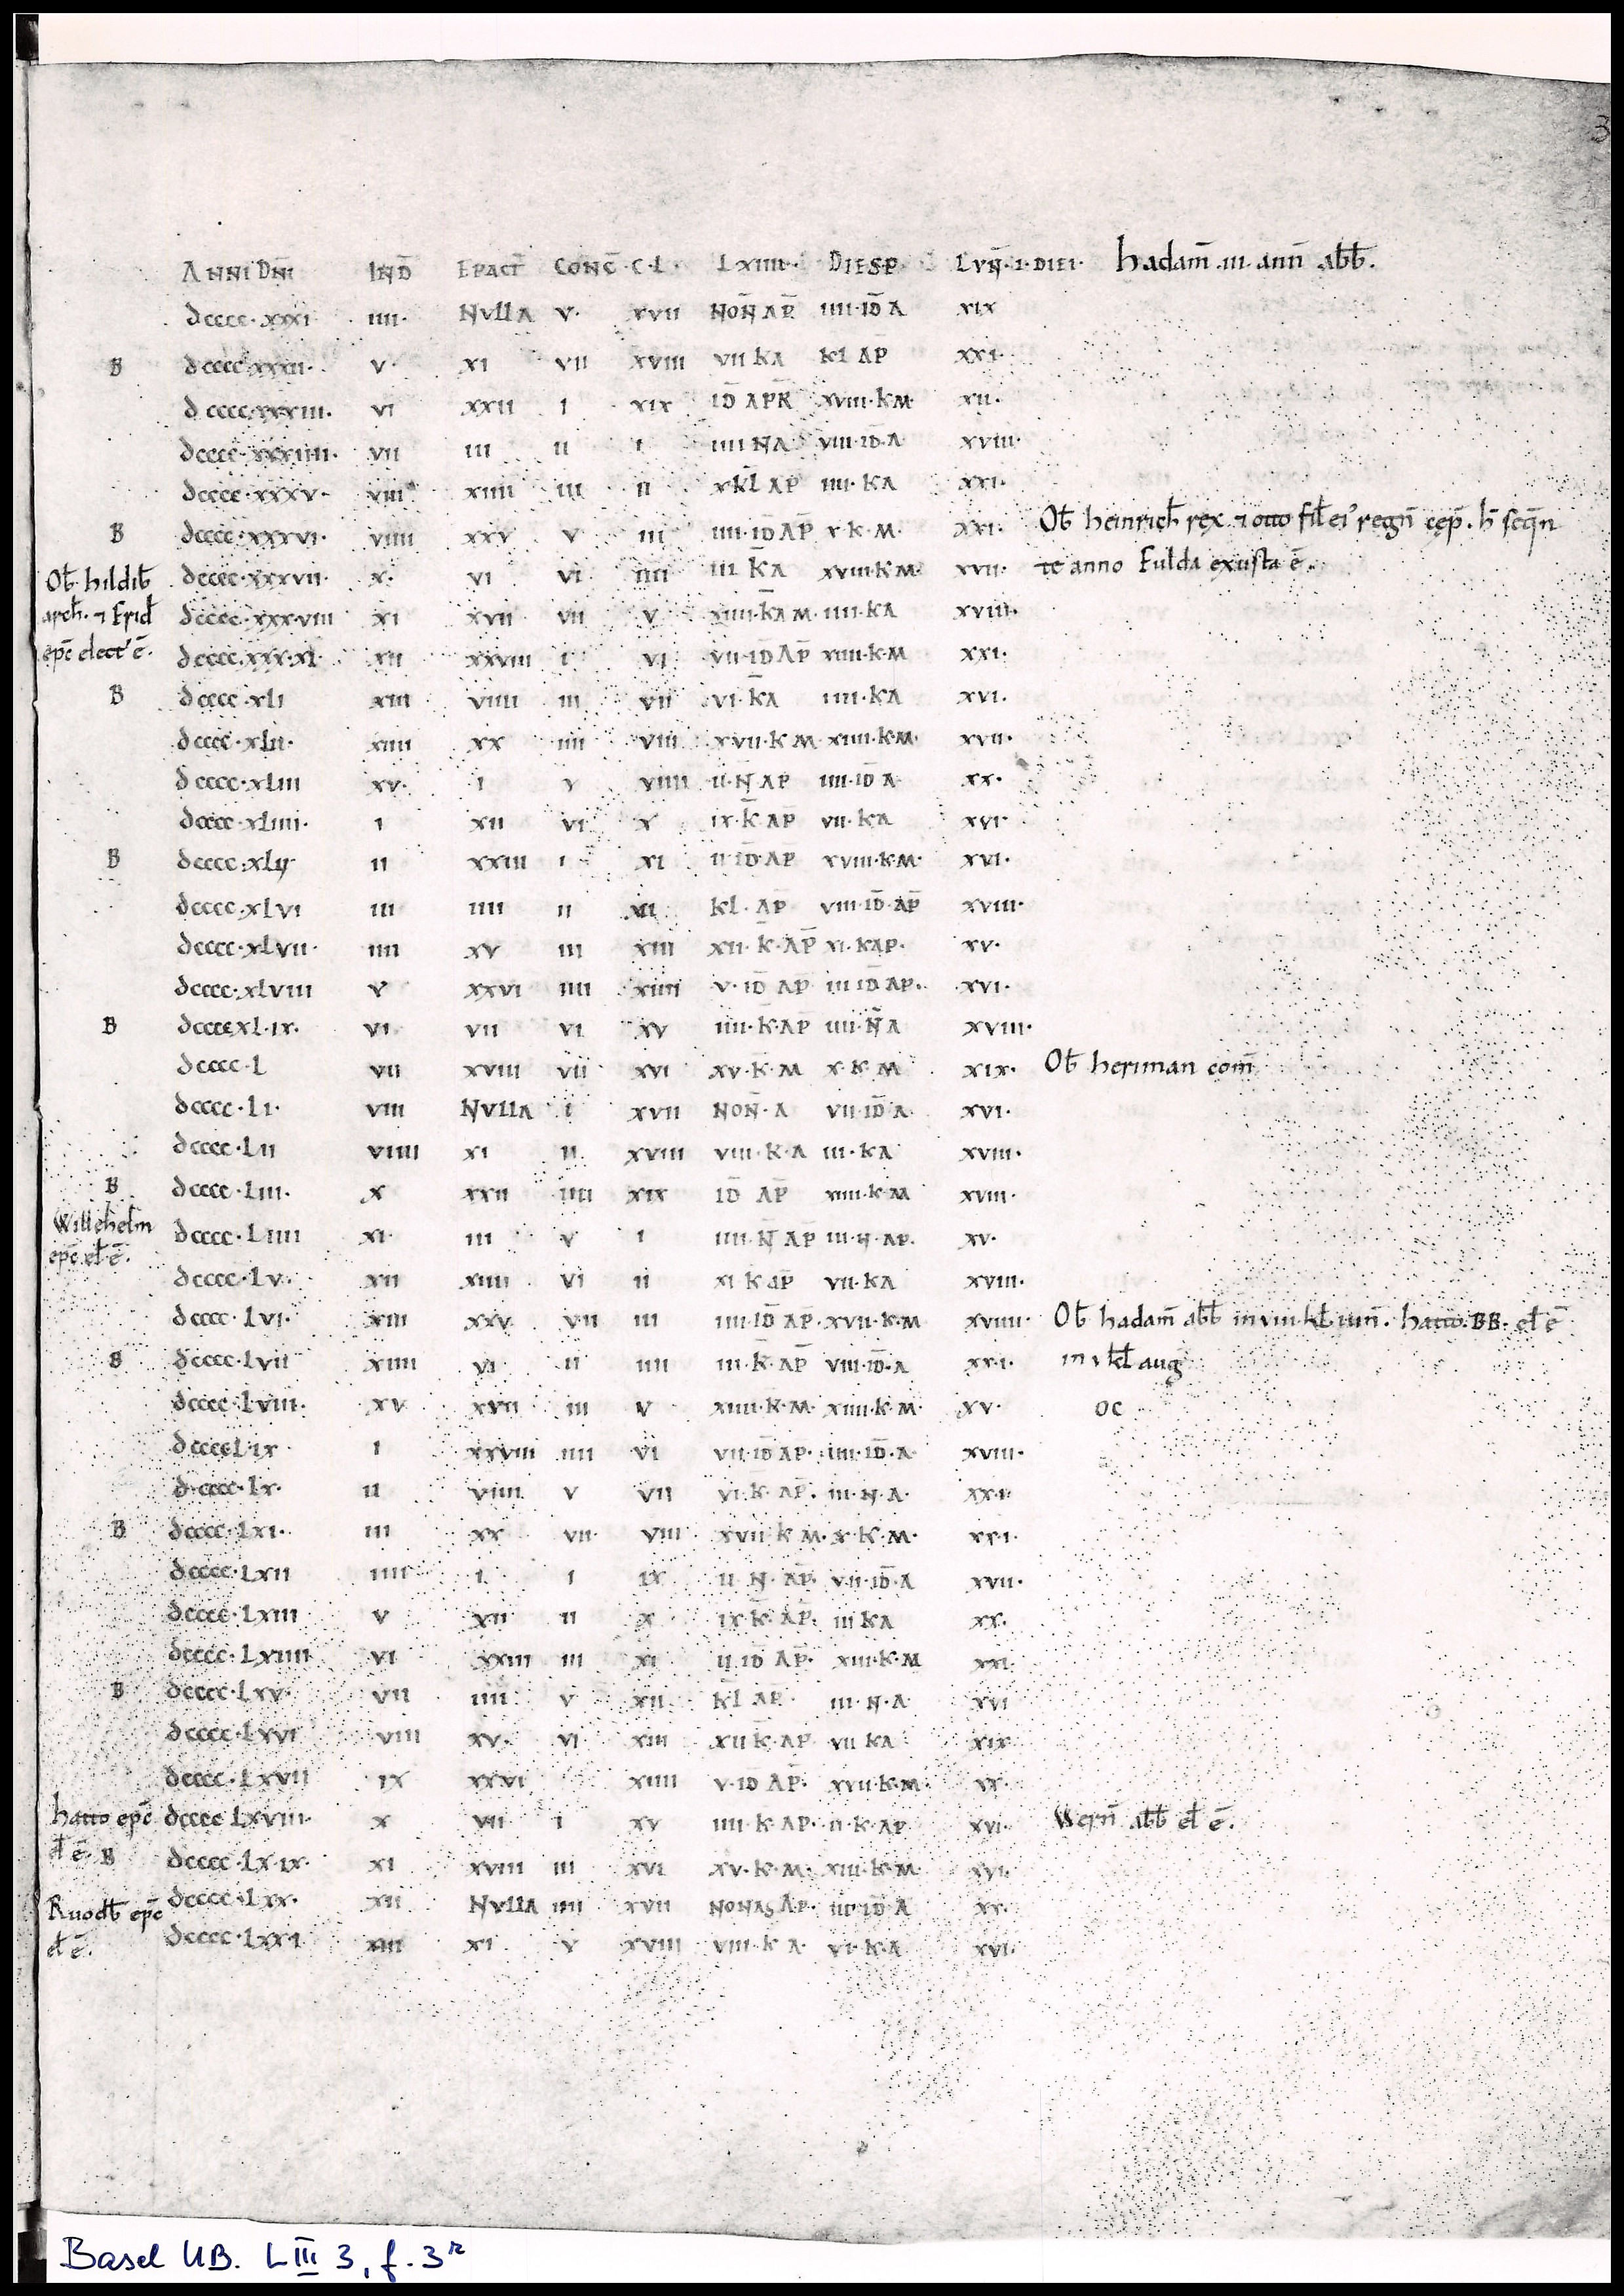 3
Anni Dn̄i Ind̄ Epact̄ Conc̄ C·L· Lxiiii· Diesp Lvn̄·1·diei· hadam̄ .iii· ann̄ abb̄.
dcccc·xxxi iiii· Nvlla v· xvii Non̄ Ap̄ iiii·Id̄ A xix
B dcccc·xxxii· v· xi vii xviii vii Ka Kl Ap xxi·
dcccc·xxxiii· vi xxii i xix Id̄ Apr̄ xviii·K·M· xii·
dcccc·xxxiiii· vii iii ii i iiii NA viii·Id·A xviii·
dcccc·xxxv· viii xiiii iii ii x Kl Ap̄ iiii·KA xxi·
B dcccc·xxxvi· viiii xxv v iii iiii·Id̄ Ap̄ x·K·M· xxi· Ob̄ heinrich̄ rex ⁊ otto fil̄ ei' regn̄ cep̄. h̄ seq̄n
Ob̄ hildib̄ dcccc·xxxvii· x· vi vi iiii iii K̄A xviii·K·M· xvii· te anno Fulda exusta ē.
arch̄. ⁊ Frid̄ dcccc·xxx·viii xi xvii vii v xiiii·K̄A M· iiii·KA xviii·
ep̄c elect' ē. dcccc·xxx·xl· xii xxviii i vi vii·Id̄ Ap̄ xiiii·K·M xxi·
B dcccc·xli xiii viiii iii vii vi·K̄A iiii·KA xvi·
dcccc·xlii· xiiii xx iiii viii xvii·K·M xiiii·K·M· xvii·
dcccc·xliii xv· i v viiii ii·N̄ Ap̄ iiii·Id̄ A xx·
dcccc·xliiii· i xii vi x ix·K̄ Ap̄ vii·KA xvi·
B dcccc·xlv ii xxiii i xi ii Id̄ Ap xviii·K·M· xvi·
dcccc·xlvi iii iiii ii xii Kl· Ap̄ viii·Id̄·Ap̄ xviii·
dcccc·xlvii· iiii xv iii xiii xii·K·Ap̄ xi·KAp· xv·
dcccc·xlviii v xxvi iiii xiiii v·Id̄ Ap̄ iii Id̄ Ap· xvi·
B dccccxl·ix· vi vii vi xv iiii·K·Ap iiii·N̄A xviii·
dcccc·l vii xviii vii xvi xv·K·M x·K·M xix· Ob̄ heriman com̄
dcccc·li· viii Nvlla i xvii Non̄·A vii·Id̄ A xvi·
dcccc·lii viiii xi ii xviii viii·K·A iii·KA xviii·
B dcccc·liii· x xxii iiii xix Id̄ Ap̄ xiiii·K·M xviii·
Willehelm dcccc·liiii xi iii v i iiii·N̄ Ap̄ iii·N·Ap· xv·
ep̄c el̄ ē. dcccc·lv· xii xiiii vi ii xi K Ap̄ vii·KA xviii·
dcccc·lvi· xiii xxv vii iii iiii·Id̄ Ap̄·xvii·K·M xviiii· Ob̄ hadam̄ abb̄ in viii·kl̄ iun̄. hatto·BB·el̄ ē
B dcccc·lvii xiiii vi ii iiii iii·K·Ap̄ viii·Id̄·A xx·i· in v kl̄ aug
dcccc·lviii· xv xvii iii v xiiii·K·M· xiiii·K·M· xv· oc
dccccl·ix i xxviii iiii vi vii·Id̄ Ap· iiii·Id̄·A xviii·
dcccc·lx· ii viiii v vii vi·K·Ap· iii·N·A·
B dcccc·lxi· iii xx vii· viii xvii K M· x·K·M· xx·i·
dcccc·lxii iiii i i ix ii N·Ap̄ vii·Id̄·A xvii·
dcccc·lxiii v xii ii x ix·K·Ap̄· iii KA xx·
dcccc·lxiiii vi xxiii iii xi ii Id̄ Ap̄· xiii·K·M xxi
B dcccc·lxv· vii iiii v xii Kl Ap iii·N·A xvi
dcccc·lxvi viii xv· vi xiii xii K·Ap vii KA xix
dcccc·lxvii ix xxvi xiiii v·Id Ap̄· xvii·K·M· xx·
hatto ep̄c dcccc lxviii· x vii i xv iiii·K·Ap· ii·K·Ap xvi Wern̄ abb̄ el̄ ē.
el̄ ē. B dcccc·lx·ix· xi xviii iii xvi xv·K·M· xiii·K·M xvi·
Ruodb̄ ep̄c dcccc·lxx· xii Nvlla iiii xvii Nonas Ap· iiii·Id̄ A xx·
el̄ ē. dcccc·lxx·i xiii xi v xviii viii·K·A· vi·K·A xvi·
Basel UB. L III 3, f. 3r